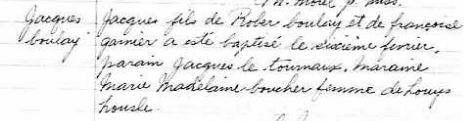 Th. Morel p. miss.
Jacques Jacques fils de Rober boulay et de françoise
boulay garnier a este baptisé le sixième fevrier,
parain Jacques le tourneaux. Maraine
Marie Madelaine boucher femme de Louys
housle.